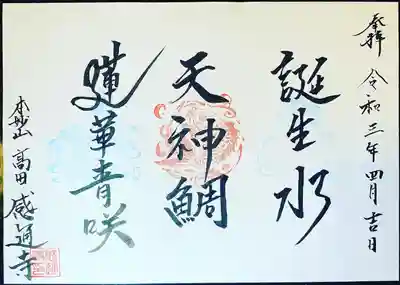 奉拝 令和三年四月吉日
誕生水
天神鯛
蓮華青咲
本妙山 高田 感通寺